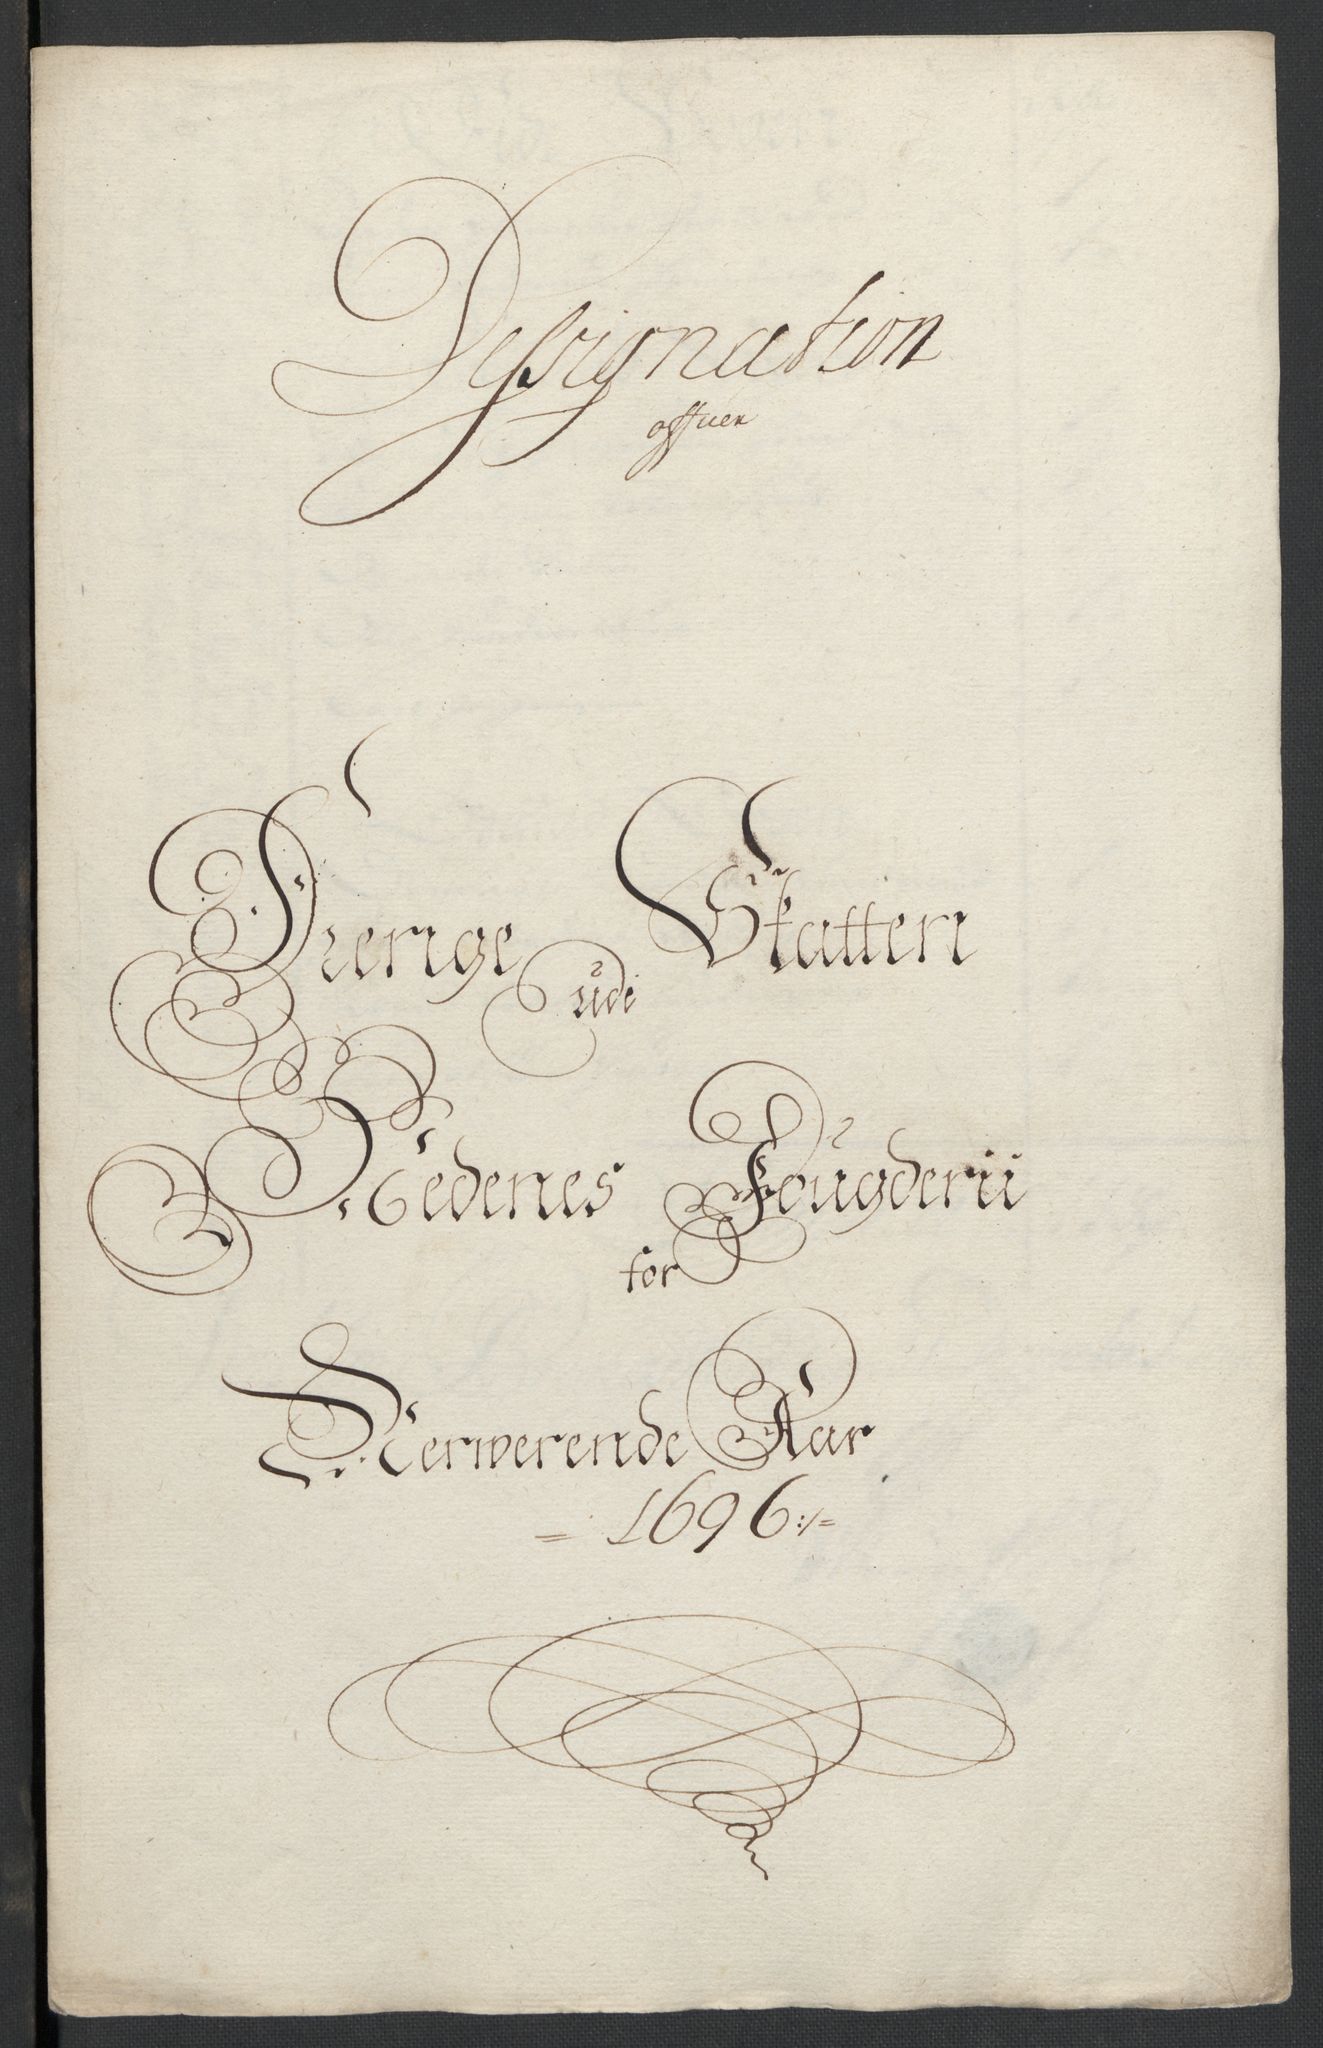 Dessignation
offuer
Øverige Skatteri
udi
Nedenes Fougderii
for
Nerwerende Aar
= 1696:/=